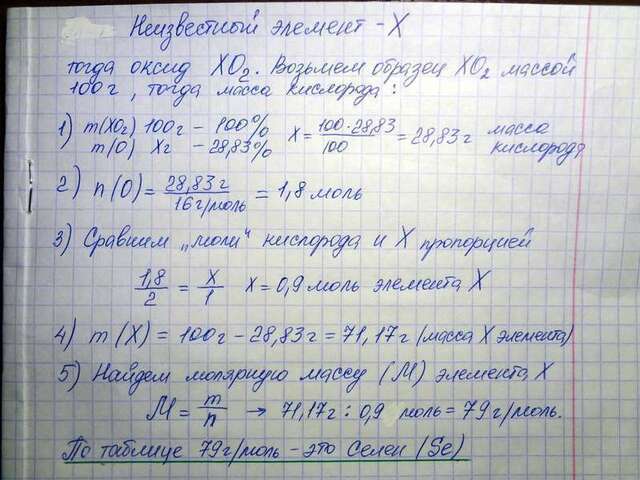 Неизвестный элемент - X
тогда оксид XO2. Возьмем образец XO2 массой
100г, тогда масса кислорода:
1) m(XO2) 100г - 100% X = 100·28,83/100 = 28,83г масса
m(O) Xг - 28,83% кислорода
2) n(O) = 28,83г/16г/моль = 1,8 моль
3) Сравним „моли" кислорода и X пропорцией
1,8/2 = X/1 X = 0,9 моль элемента X
4) m(X) = 100г - 28,83г = 71,17г (масса X элемента)
5) Найдем молярную массу (M) элемента X
M = m/n → 71,17г : 0,9 моль = 79г/моль.
По таблице 79г/моль - это Селен (Se)